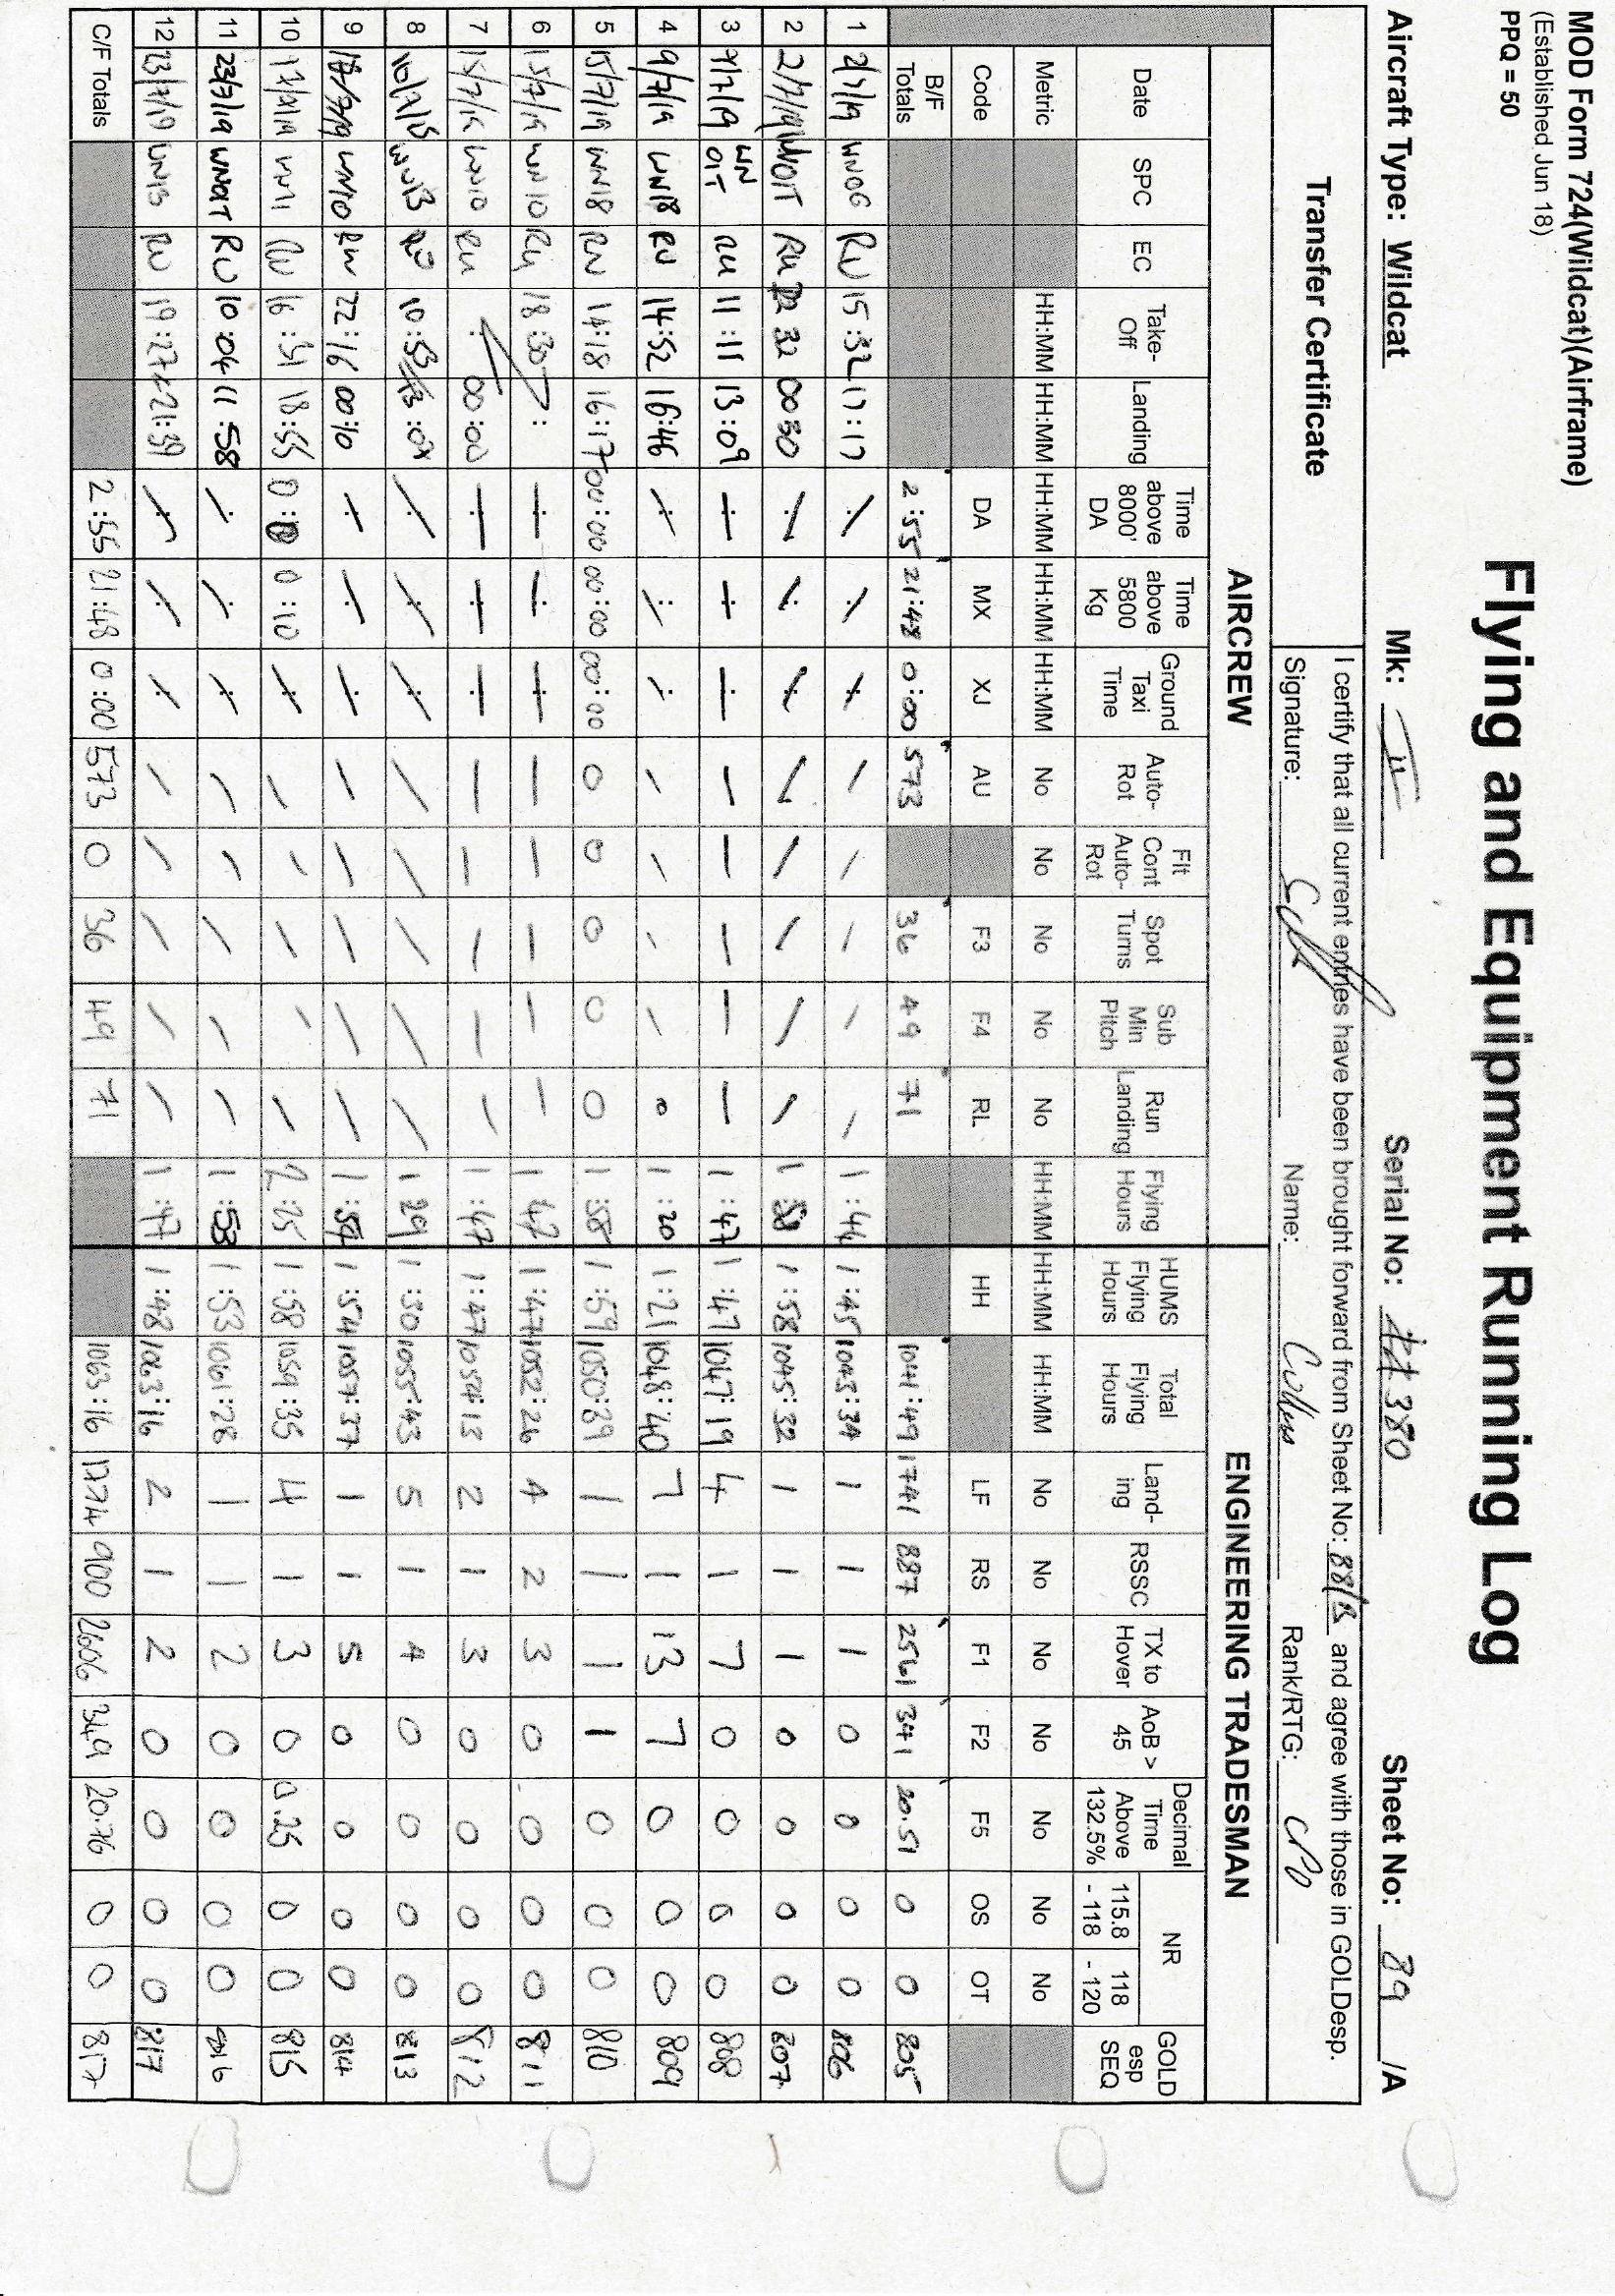 MOD Form 724(Wildcat)(Airframe)
(Established Jun 18)
PPQ = 50
Flying and Equipment Running Log
Aircraft Type: Wildcat Mk: Serial No: 380 Sheet No: 89 /A
Transfer Certificate
I certify that all current entries have been brought forward from Sheet No: 88/A and agree with those in GOLDesp.
Signature: Name: Rank/RTG: CPO
AIRCREW ENGINEERING TRADESMAN
Date SPC EC Take-Off Landing Time above 8000' DA Time above 5800 Kg Ground Taxi Time Auto-Rot Flt Cont Auto-Rot Spot Turns Sub Min Pitch Run Landing Flying Hours HUMS Flying Hours Total Flying Hours Land-ing RSSC TX to Hover AoB > 45 Decimal Time Above 132.5% NR 115.8 - 118 118 - 120 GOLD esp SEQ
Metric HH:MM HH:MM HH:MM HH:MM HH:MM No No No No No HH:MM HH:MM HH:MM No No No No No No No
Code DA MX XJ AU F3 F4 RL HH LF RS F1 F2 F5 OS OT
B/F Totals 2:55 21:48 0:00 573 36 49 71 1041:49 1741 887 2561 341 20.51 0 0 805
1 2/7/19 WN06 RU 15:32 17:17 / / / / / / / / 1:44 1:45 1043:34 1 1 1 0 0 0 0 806
2 2/7/19 WN01T RU 32 00 30 / / / / / / / / 1 58 1:58 1045:32 1 1 1 0 0 0 0 807
3 9/7/19 WN01T RU 11:11 13:09 / / / / / / / / 1:47 1:47 1047:19 4 1 7 0 0 0 0 808
4 9/7/19 WN18 RU 14:52 16:46 / / / / / / / 0 1:20 1:21 1048:40 7 1 13 7 0 0 0 809
5 15/7/19 WN18 RU 14:18 16:17 00:00 00:00 00:00 0 0 0 0 0 1:58 1:59 1050:39 1 1 1 1 0 0 0 810
6 15/7/19 WN10 RU 18:30 : / / / / / / / / 1 47 1:47 1052:26 4 2 3 0 0 0 0 811
7 15/7/19 WN10 RU : 00:00 / / / / / / / / 1:47 1:47 1054:13 2 1 3 0 0 0 0 812
8 WN13 RU 10:53 / / / / / / / / 1 29 1:30 1055:43 5 1 4 0 0 0 0 813
9 WN10 RU 22:16 00:10 / / / / / / / / 1:54 1:54 1057:37 1 1 5 0 0 0 0 814
10 17/7/19 RU 16:51 18:55 0:10 / / / / / / 1:58 1059:35 4 1 3 0 0.25 0 0 815
11 23/7/19 WN01T RU 10:04 11:58 / / / / / / / / 1:53 1:53 1061:28 1 1 2 0 0 0 0 816
12 23/7/19 WN13 RU 19:27 21:39 / / / / / / / / 1:47 1:48 1063:16 2 1 2 0 0 0 0 817
C/F Totals 2:55 21:48 0:00 573 0 36 49 71 1063:16 1774 900 2606 349 20.76 0 0 817